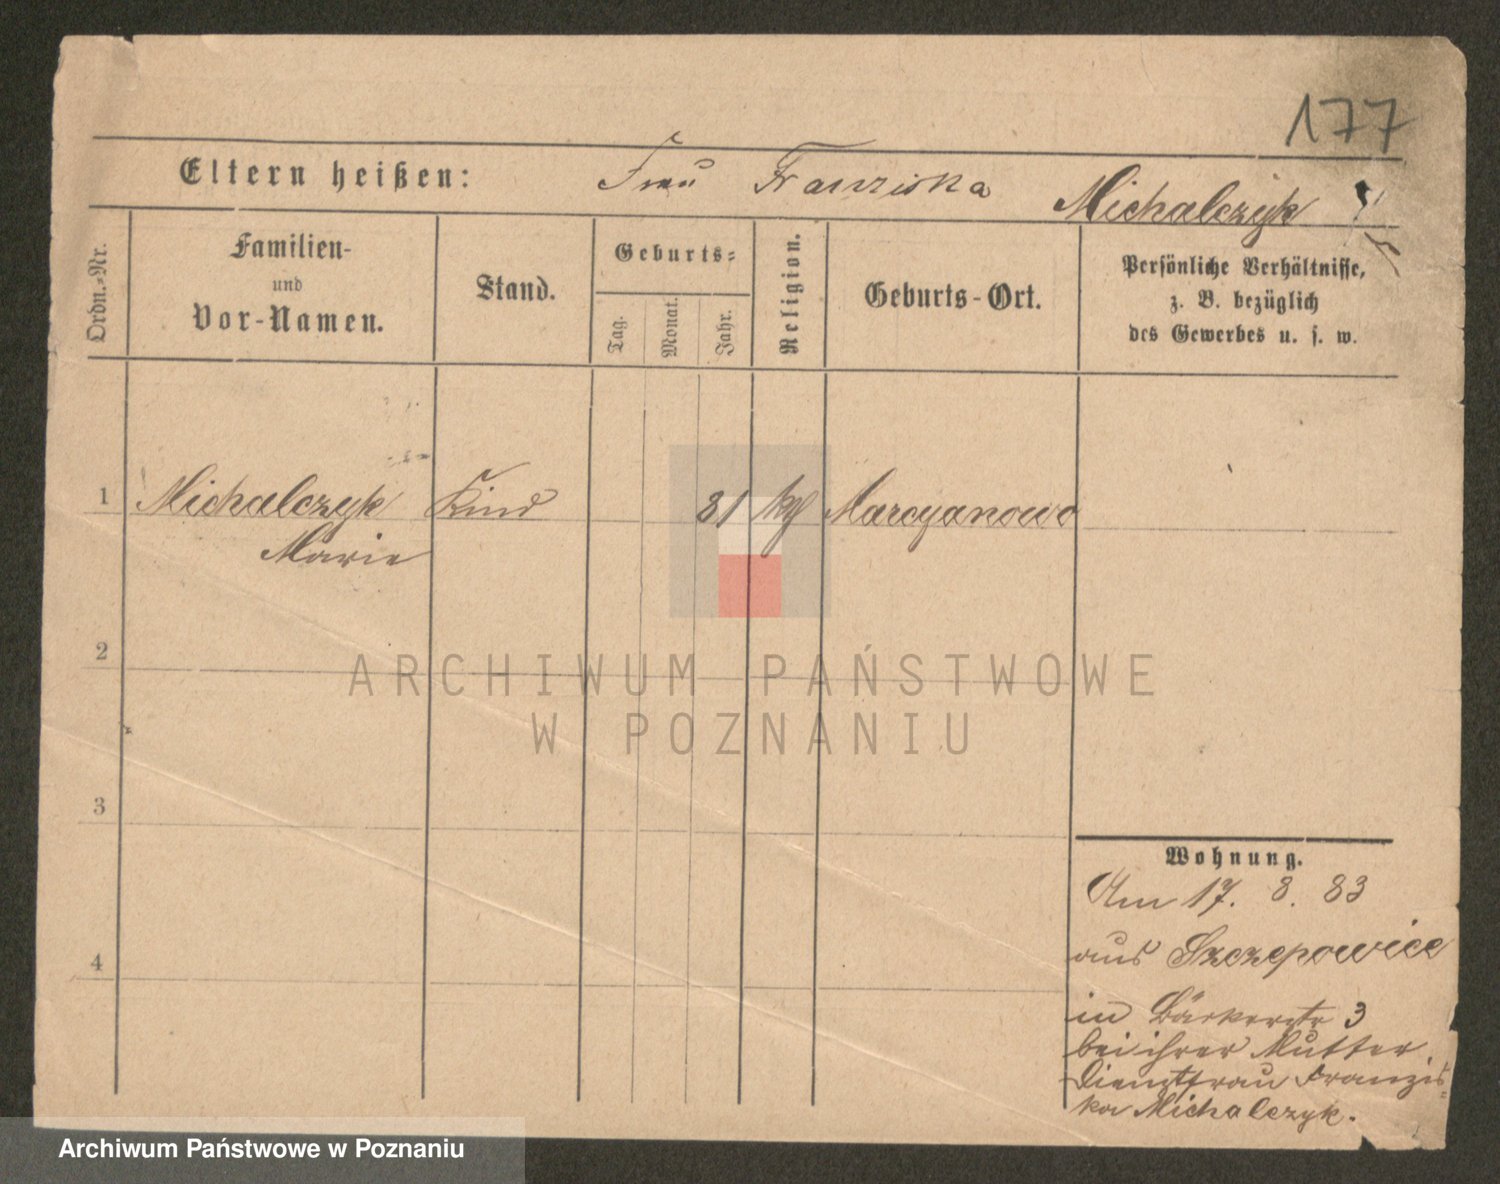 177
Eltern heißen: Frau Franziska Michalczyk
Ordn.-Nr.
Familien-
und
Vor-Namen.
Stand.
Geburts-
Tag.
Monat.
Jahr.
Religion.
Geburts-Ort.
Persönliche Verhältnisse,
z. B. bezüglich
des Gewerbes u. s. w.
1 Michalczyk Kind 81 kg Marcyanowo
Marie
2
3
4
Wohnung.
Am 17. 8. 83
aus Szczepowice
in Bäckerstr 3
bei ihrer Mutter
Dienstfrau Franzis-
ka Michalczyk.
ARCHIWUM PAŃSTWOWE
W POZNANIU
Archiwum Państwowe w Poznaniu